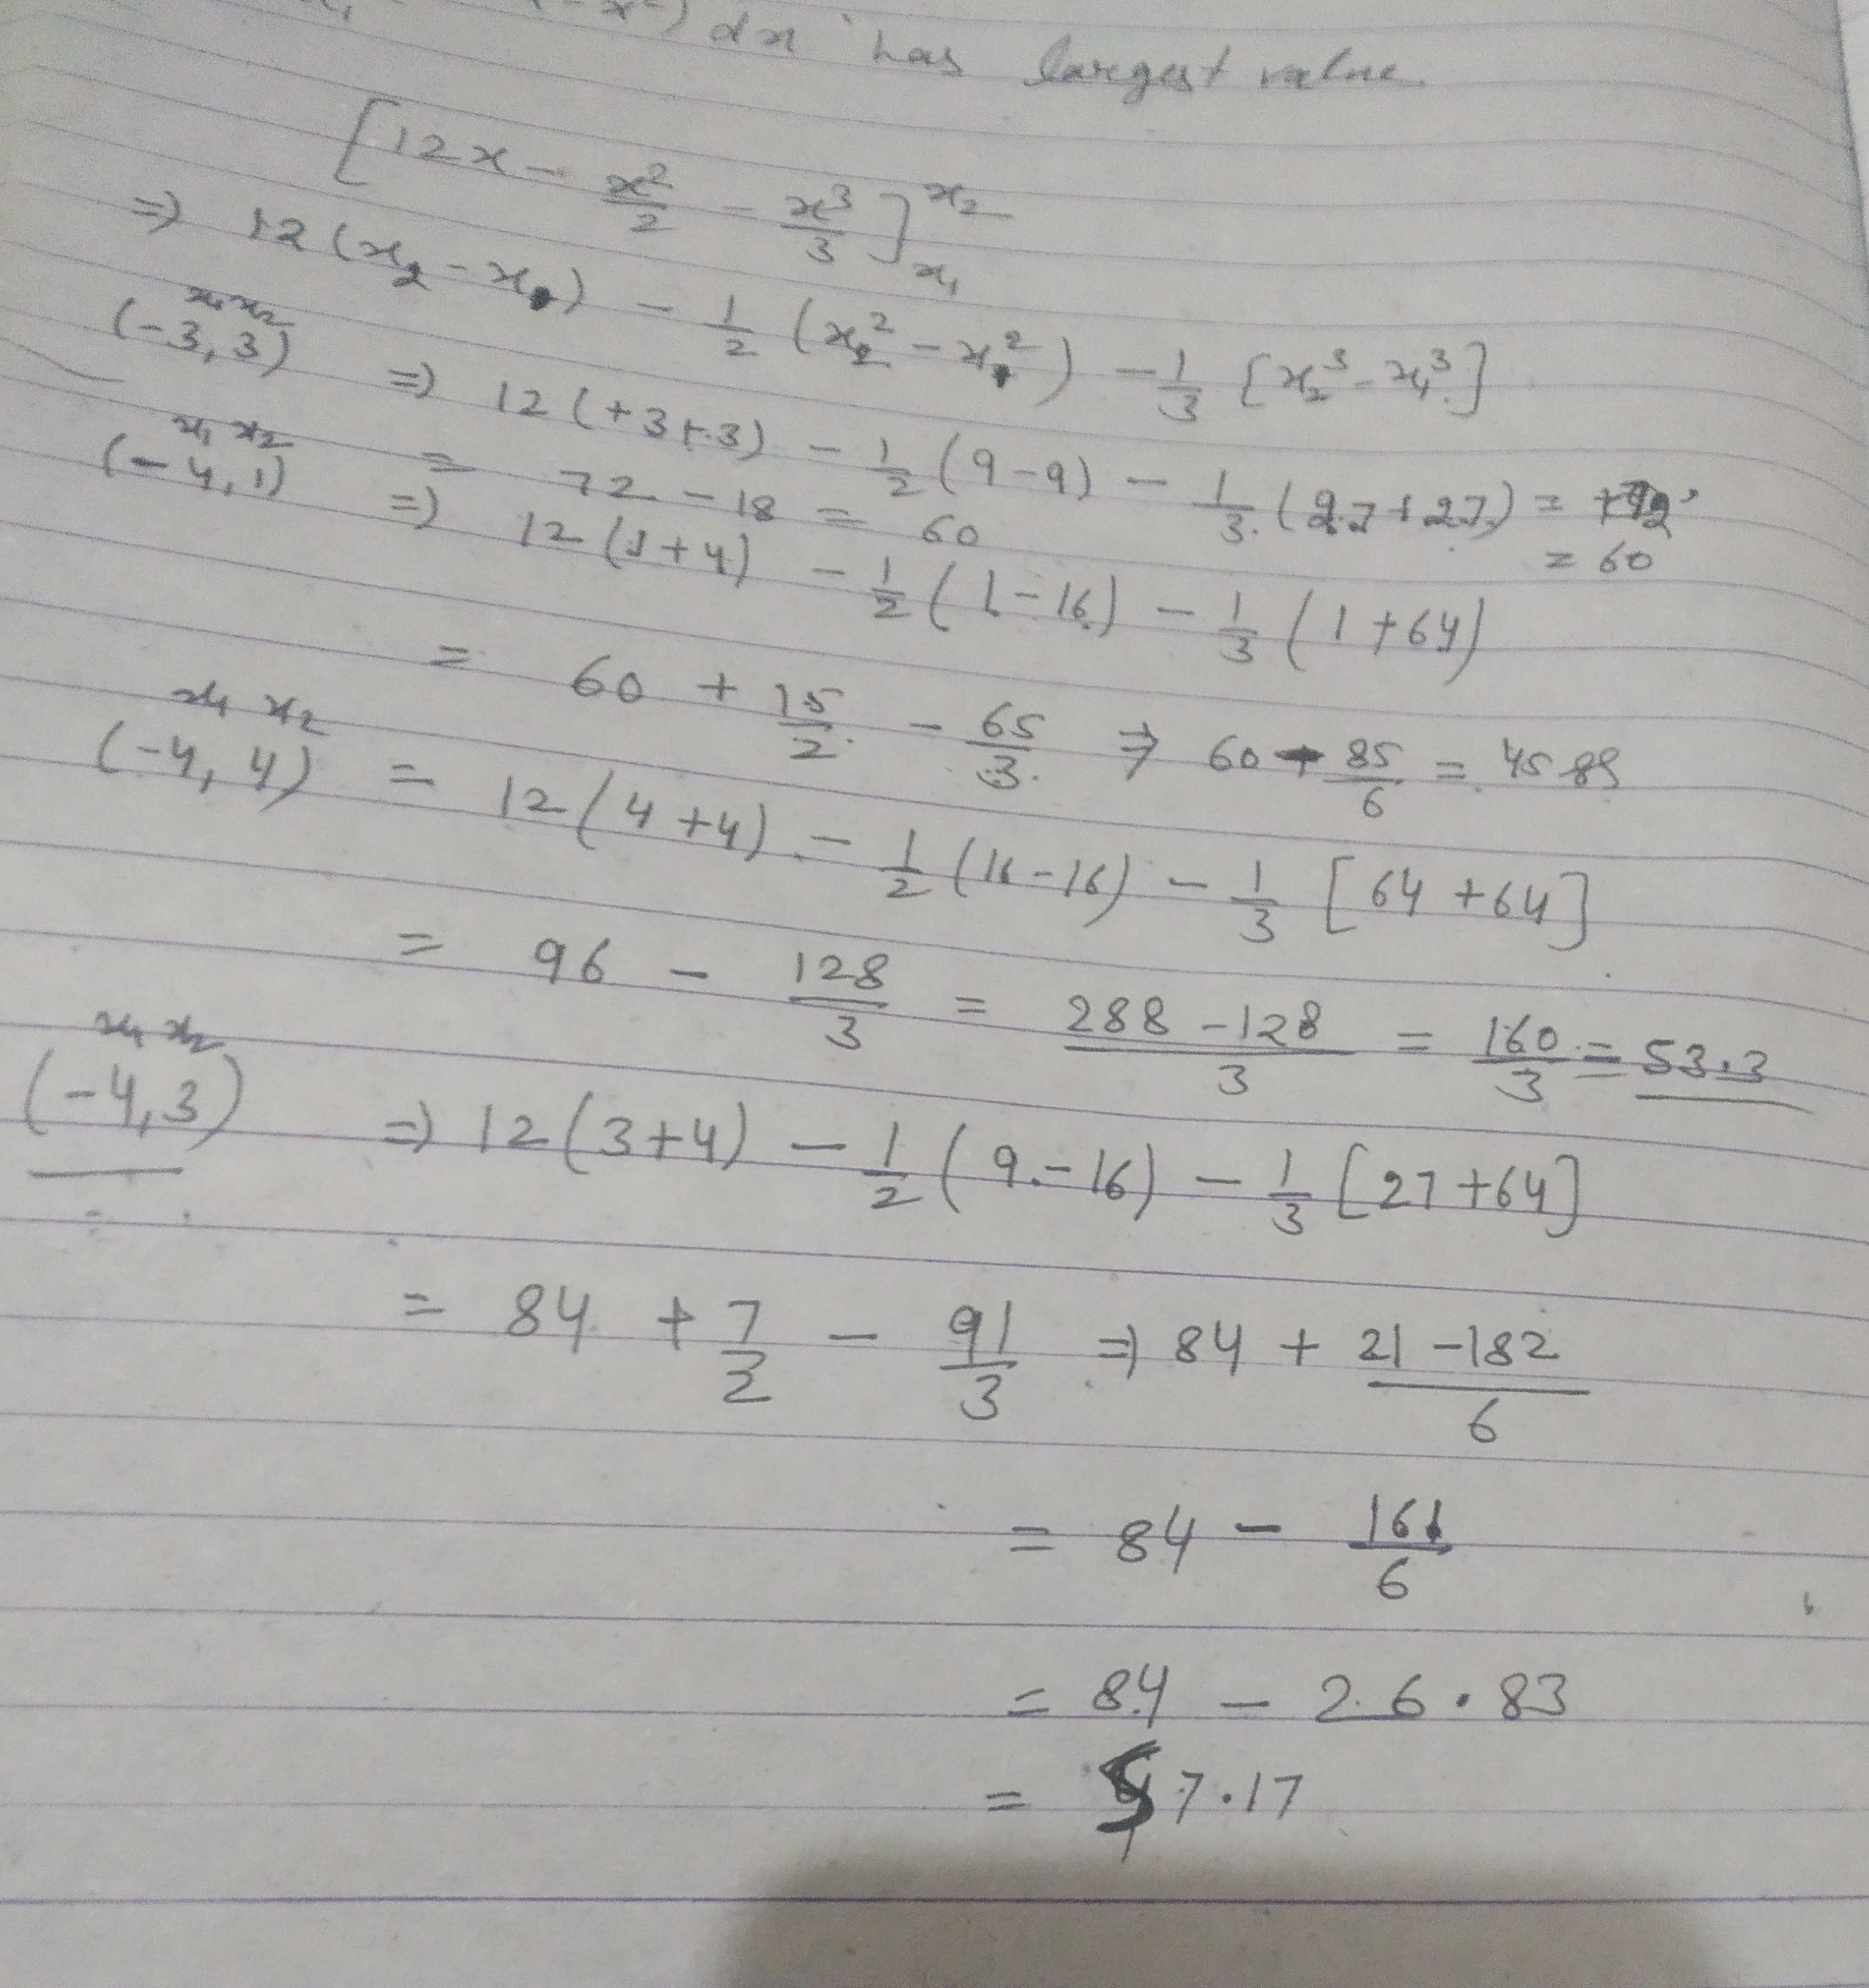 x²) dx has largest value.
[12x - x²/2 - x³/3]ₓ₁ˣ²
⇒ 12(x₂ - x₁) - 1/2 (x₂² - x₁²) - 1/3 [x₂³ - x₁³]
x₁ x₂
(-3, 3) ⇒ 12(+3+3) - 1/2 (9-9) - 1/3 (27+27) =
= 72 - 18 = 60 = 60
x₁ x₂
(-4, 1) ⇒ 12(1+4) - 1/2 (1-16) - 1/3 (1+64)
= 60 + 15/2 - 65/3 ⇒ 60 - 85/6 = 45.89
x₁ x₂
(-4, 4) = 12(4+4) - 1/2 (16-16) - 1/3 [64+64]
= 96 - 128/3 = (288-128)/3 = 160/3 = 53.3
x₁ x₂
(-4, 3) ⇒ 12(3+4) - 1/2 (9-16) - 1/3 [27+64]
= 84 + 7/2 - 91/3 ⇒ 84 + (21-182)/6
= 84 - 161/6
= 84 - 26.83
= 57.17